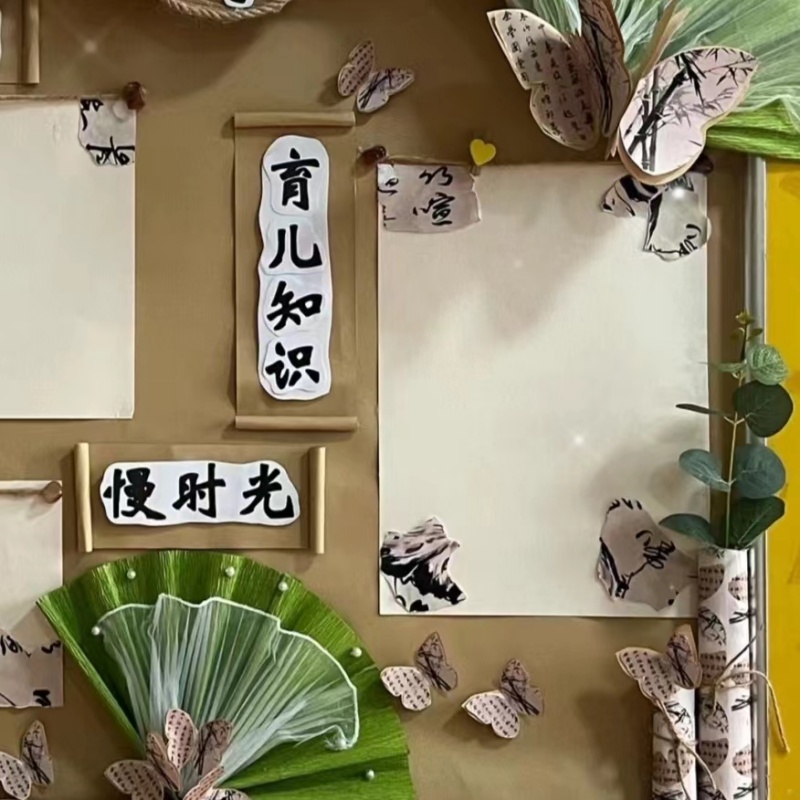 育儿知识
慢时光
喧